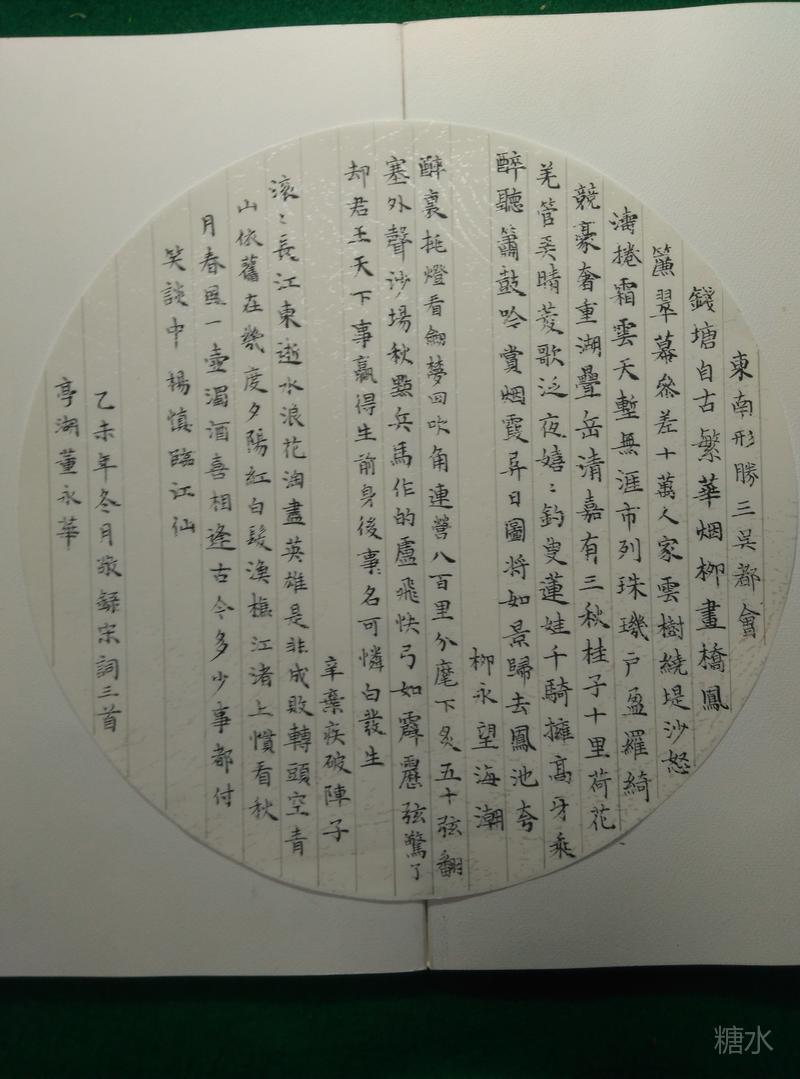 東南形勝三吴都會
錢塘自古繁華烟柳畫橋鳳
簾翠幕參差十萬人家雲樹繞堤沙怒
濤捲霜雲天塹無涯市列珠璣户盈羅綺
競豪奢重湖疊岳清嘉有三秋桂子十里荷花
羌管美晴菱歌泛夜嬉〻釣叟蓮娃千騎擁高牙乘
醉聽簫鼓吟賞烟霞异日圖将如景歸去鳳池夸
柳永望海潮
醉裏挑燈看劍夢回吹角連營八百里分麾下炙五十弦翻
塞外聲沙場秋點兵馬作的盧飛快弓如霹靂弦驚了
却君王天下事贏得生前身後事名可憐白發生
辛棄疾破陣子
滚〻長江東逝水浪花淘盡英雄是非成敗轉頭空青
山依舊在幾度夕陽紅白髮漁樵江渚上慣看秋
月春風一壺濁酒喜相逢古今多少事都付
笑談中 楊慎臨江仙
乙未年冬月敬録宋詞三首
亭湖董永華
糖水